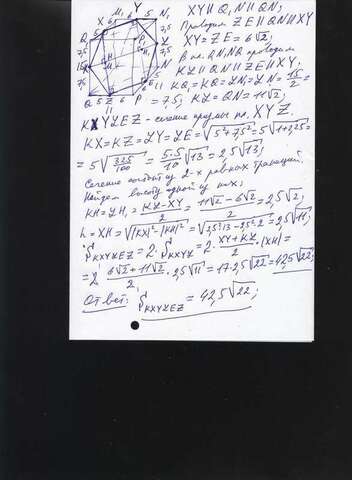 M₁ Y
X 6 5 N₁
Q₁ 5
XY || Q₁N₁ || QN;
Проводим ZE || QN || XY
XY = ZE = 6√2;
В пл. QNN₁Q проводим
KL || QN || ZE || XY;
KQ₁ = KQ = LN₁ = LN = 15/2 =
Q 5 Z 6 P
11
= 7,5; KL = QN = 11√2;
KXYLEZ - сечение призмы пл. XYZ.
KX = KZ = LY = LE = √5²+7,5² = 5√1+3,25 =
= 5√325/100 = 5·5/10 √13 = 2,5√13;
Сечение состоит из 2-х равных трапеций.
Найдем высоту одной из них:
KH = LH₁ = KL-XY/2 = 11√2-6√2/2 = 2,5√2;
h = XH = √|KX|²-|KH|² = √2,5²·13-2,5²·2 = 2,5√11;
S KXYLEZ = 2·S KXYL = 2· XY+KL/2 ·|XH| =
= 2· 6√2+11√2/2 · 2,5√11 = 17·2,5√22 = 42,5√22;
Ответ: S KXYLEZ = 42,5√22;